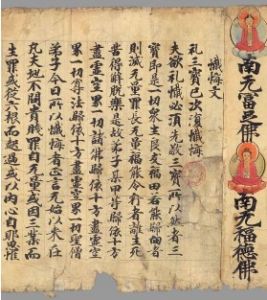 南无冨足佛
南无福德佛
懺悔文
礼三寳已次復懺悔
夫欲礼懺必須先敬三寳所以然者三
寳即是一切衆生良友福田若能歸向者
則滅无量罪長无量福能令行者離生死
苦得解脫樂是故弟子某甲等歸依十方
盡虛空界一切諸佛歸依十方盡虛空
界一切尊法歸依十方盡虛空界一切聖僧
弟子今日所以懺悔者正言无始以來在
凡夫地不問貴賤罪自无量或因三業而
生罪或從六根而起過或以内心自耶思惟